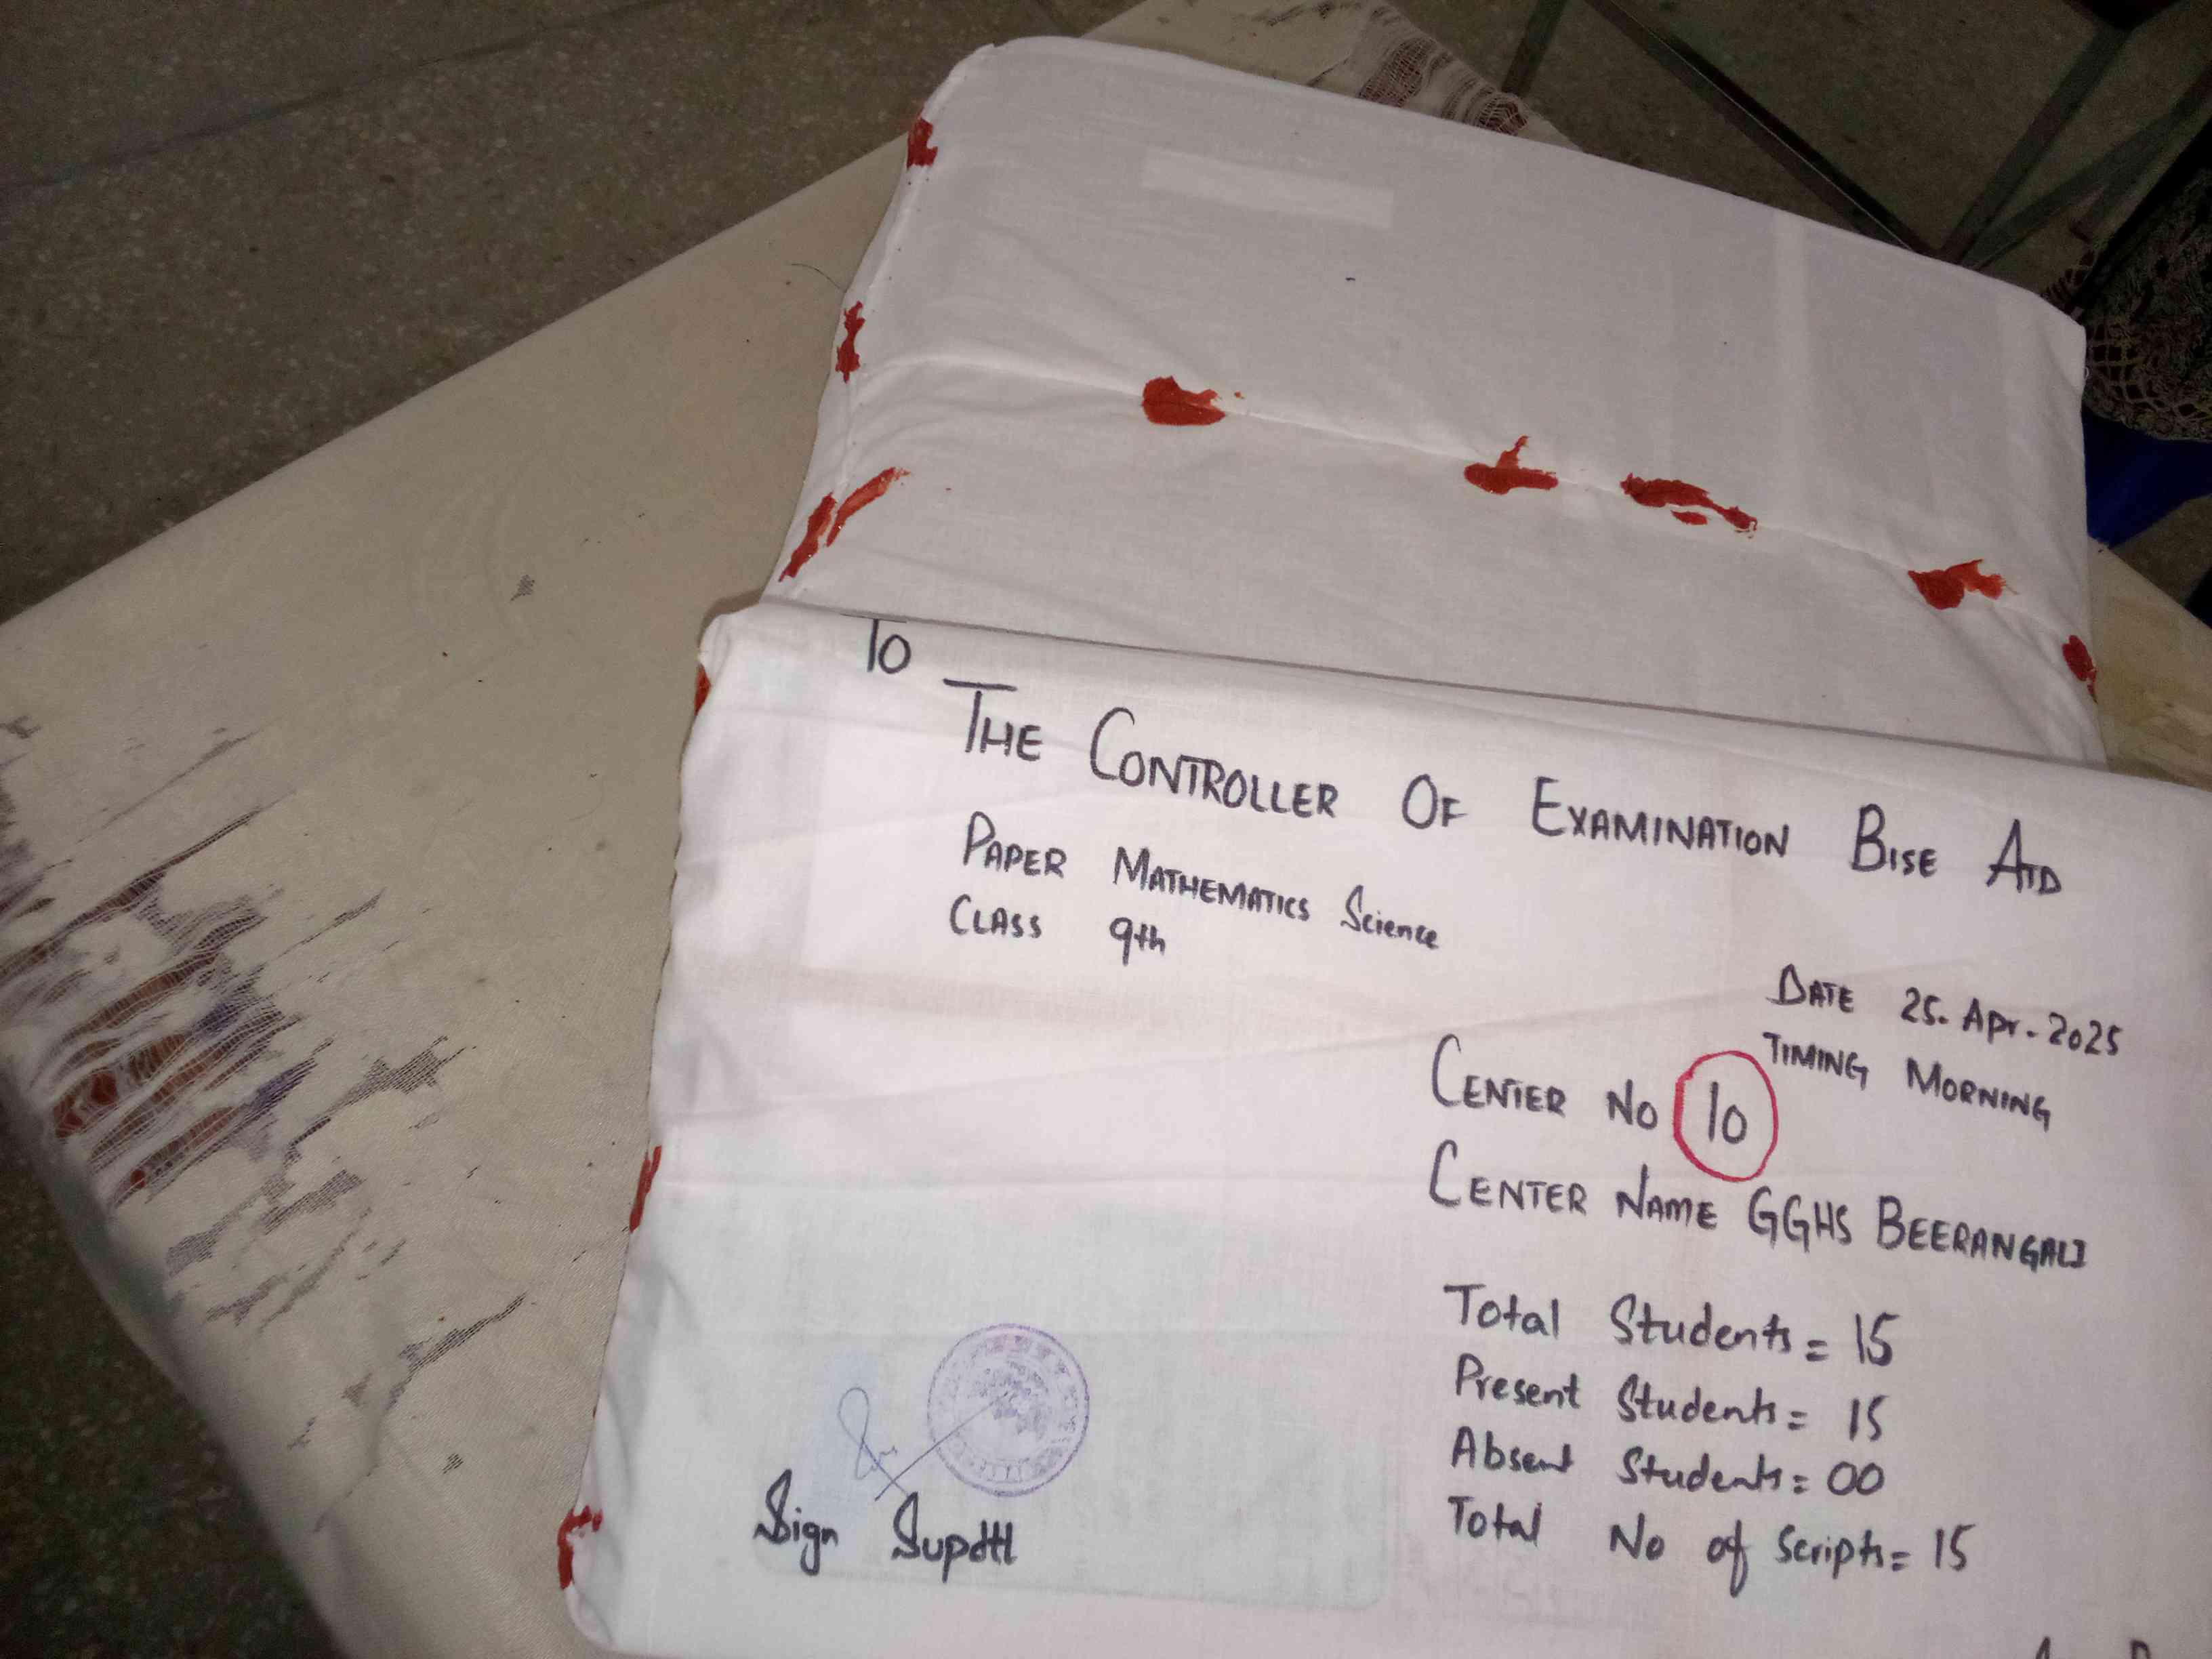 To
THE CONTROLLER OF EXAMINATION BISE ATD
PAPER MATHEMATICS Science
CLASS 9th
DATE 25. Apr. 2025
TIMING MORNING
CENTER NO 10
CENTER NAME GGHS BEERANGALI
Total Students = 15
Present Students = 15
Absent Students = 00
Total No of scripts = 15
Sign Supdtt